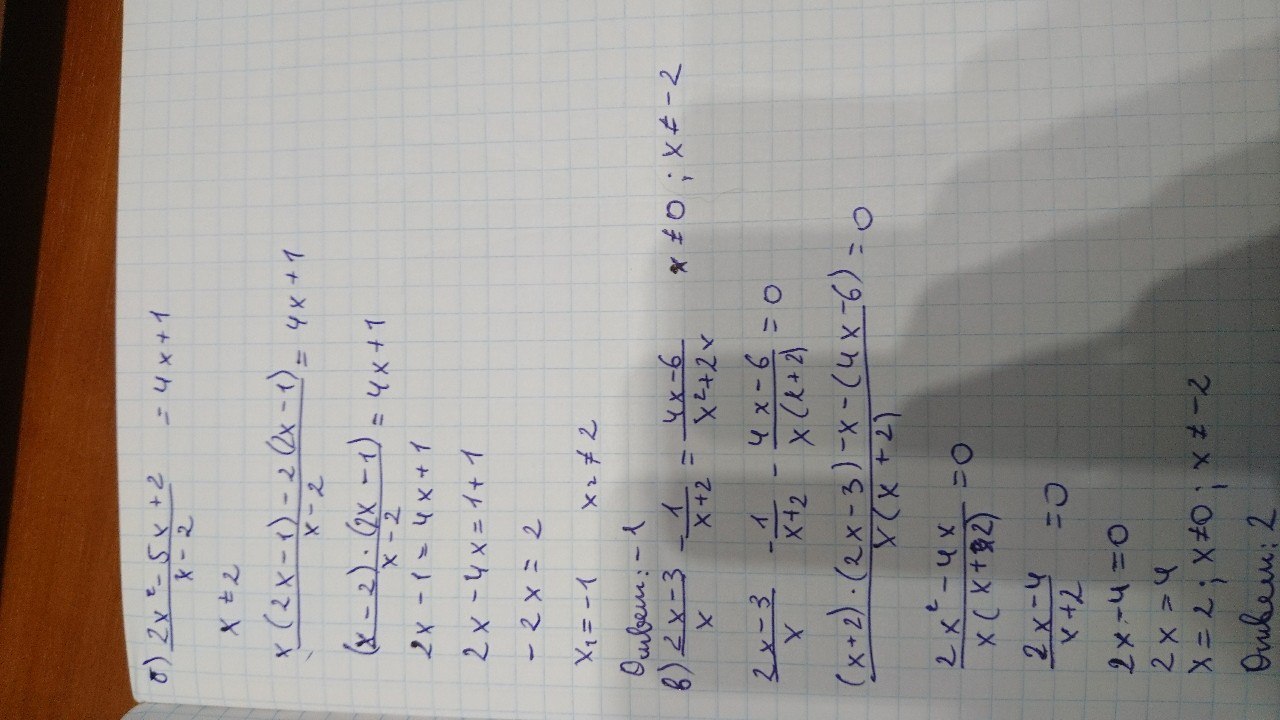 б) (2x² - 5x + 2)/(x - 2) = 4x + 1
x ≠ 2
(x(2x - 1) - 2(2x - 1))/(x - 2) = 4x + 1
((x - 2) · (2x - 1))/(x - 2) = 4x + 1
2x - 1 = 4x + 1
2x - 4x = 1 + 1
- 2x = 2
x₁ = -1 x₂ ≠ 2
Ответ: -1
в) (2x - 3)/x - 1/(x + 2) = (4x - 6)/(x² + 2x) x ≠ 0 ; x ≠ -2
(2x - 3)/x - 1/(x + 2) - (4x - 6)/(x(x + 2)) = 0
((x + 2) · (2x - 3) - x - (4x - 6))/(x(x + 2)) = 0
(2x² - 4x)/(x(x + 2)) = 0
(2x - 4)/(x + 2) = 0
2x - 4 = 0
2x = 4
x = 2 ; x ≠ 0 ; x ≠ -2
Ответ: 2